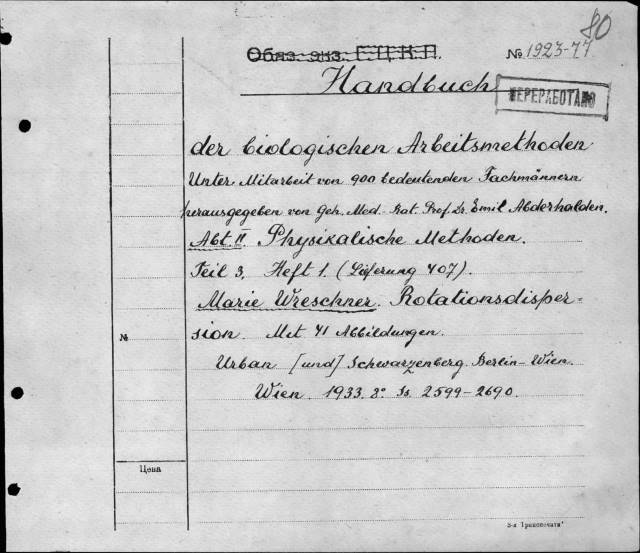 80
Обяз. экз. Г.Ц.К.П.
№ 1923-77
Handbuch
ПЕРЕРАБОТАНО
der biologischen Arbeitsmethoden
Unter Mitarbeit von 900 bedeutenden Fachmännern
herausgegeben von Geh. Med.-Rat. Prof. Dr. Emil Abderhalden.
Abt. II. Physikalische Methoden.
Teil 3, Heft 1. (Lieferung 407).
Marie Wreschner. Rotationsdisper-
№ sion. Mit 71 Abbildungen.
Urban [und] Schwarzenberg. Berlin-Wien.
Wien. 1933. 8° Ss. 2599-2690.
Цена
3-я "Транспечати"